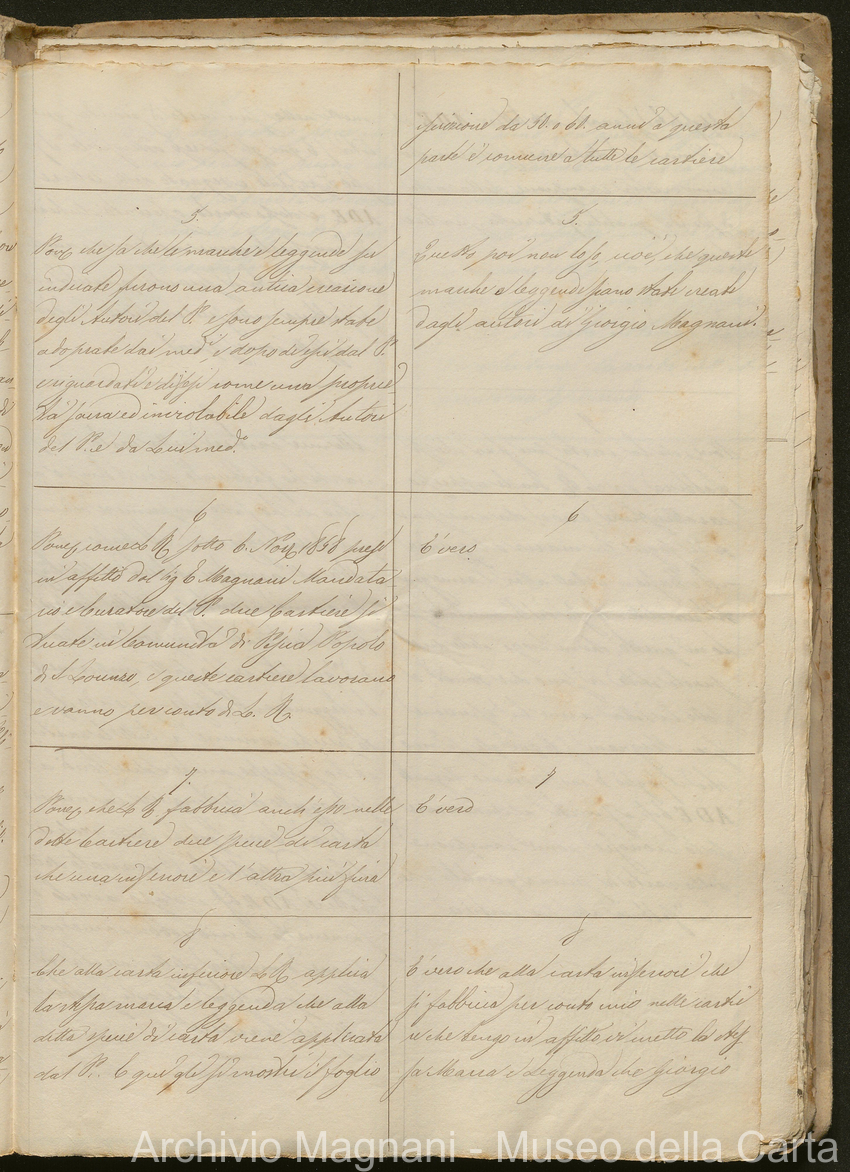 istruzione da 50. o 60. anni a questa
parte è comune a tutte le cartiere
5.
Pong che sa che le marche e leggende su
indicate furono una antica creazione
degli Autori del P. e sono sempre state
adoprate dai med. e dopo di essi dal P.
e riguardati e difesi come una proprie
tà sacra ed inviolabile dagli Autori
del P. e da Lui med.
5.
Questo poi non lo so, cioè, che queste
marche e leggende siano state create
dagli autori di Giorgio Magnani.
6
Pong come L. R. sotto 6. Nov 1838 prese
in affitto dal Sig E. Magnani Mandata
rio e Curatore del P. due Cartiere si
tuate in Comunità di Pescia Popolo
di S Lorenzo, e queste cartiere lavorano
e vanno per conto di L. R.
6
È vero
7.
Pong che L R fabbrica anch'esso nelle
dette Cartiere due specie di carta
che una inferiore e l'altra più fina
7
È vero
8
Che alla carta inferiore L R applica
la stessa marca e leggenda che alla
detta specie di carta viene applicata
dal P. E qui gle si mostri il foglio
8
È vero che alla carta inferiore che
si fabbrica per conto mio nelle cartie
re che tengo in affitto ci metto la stes
sa Marca e Leggenda che Giorgio
Archivio Magnani - Museo della Carta